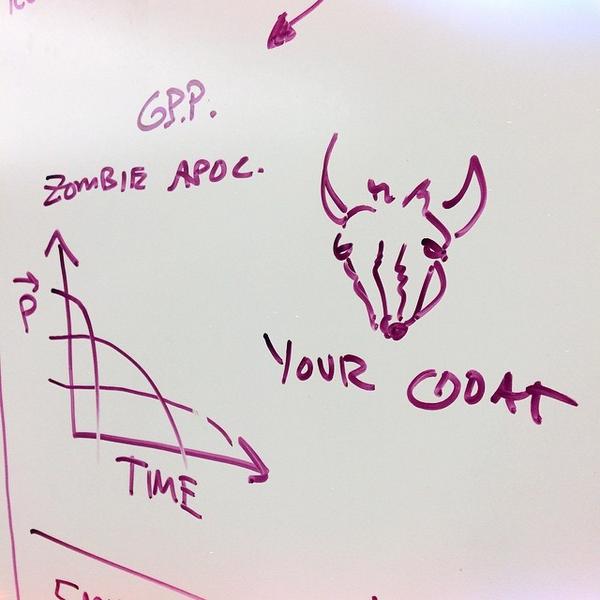 G.P.P.
ZOMBIE APOC.
P
TIME
YOUR